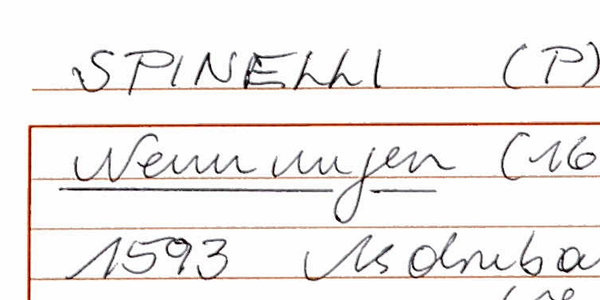 SPINELLI (P)
Nennungen (16
1593 Asdruba